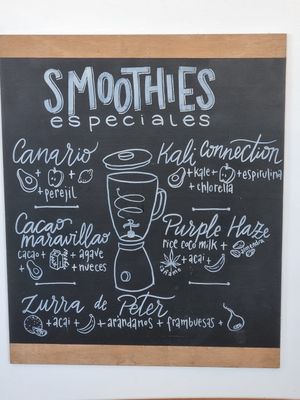 SMOOTHIES
especiales
Canario
+ +
+ perejil
Kali Connection
+ kale + + espirulina
+ chlorella
Cacao
maravillao
cacao + + agave
+ + nueces
Purple Haze
rice coco milk +
almendra
+ açai +
Zurra de Peter
+ açai + + arandanos + frambuesas +